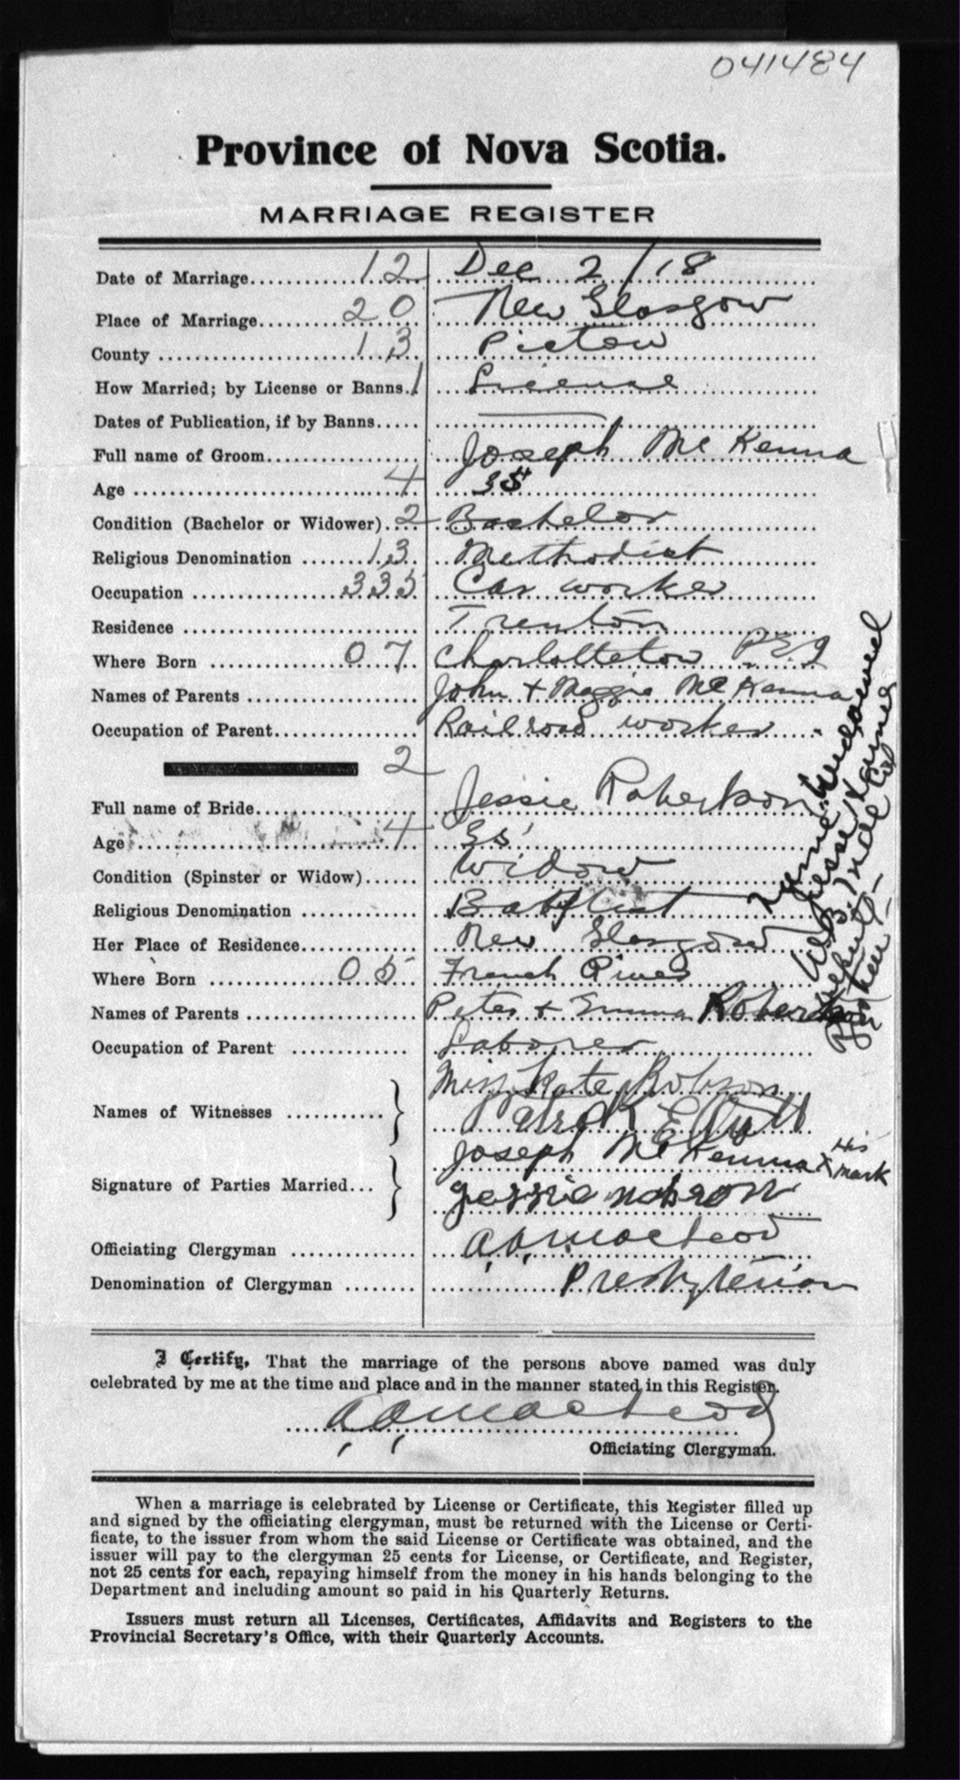 041484
Province of Nova Scotia.
MARRIAGE REGISTER
Date of Marriage 12 Dec 2/18
Place of Marriage 20 New Glasgow
County 13 Pictou
How Married; by License or Banns. 1 License
Dates of Publication, if by Banns
Full name of Groom Joseph McKenna
Age 4 35
Condition (Bachelor or Widower) 2 Bachelor
Religious Denomination 13 Methodist
Occupation 335 Car worker
Residence Trenton
Where Born 07 Charlottetow P.E.I
Names of Parents John + Maggie McKenna
Occupation of Parent Railroad worker
2
Full name of Bride Jessie Robertson
Age 4 35
Condition (Spinster or Widow) Widow
Religious Denomination Baptist
Her Place of Residence New Glasgow
Where Born 05 French River
Names of Parents Peter + Emma Robertson
Occupation of Parent Laborer
Names of Witnesses Miss Kate Robson
Signature of Parties Married Joseph McKenna x His mark
Jessie
Officiating Clergyman A, D, MacLeod
Denomination of Clergyman Presbyterian
I Certify, That the marriage of the persons above named was duly
celebrated by me at the time and place and in the manner stated in this Register.
A, D, MacLeod
Officiating Clergyman.
When a marriage is celebrated by License or Certificate, this Register filled up
and signed by the officiating clergyman, must be returned with the License or Certi-
ficate, to the issuer from whom the said License or Certificate was obtained, and the
issuer will pay to the clergyman 25 cents for License, or Certificate, and Register,
not 25 cents for each, repaying himself from the money in his hands belonging to the
Department and including amount so paid in his Quarterly Returns.
Issuers must return all Licenses, Certificates, Affidavits and Registers to the
Provincial Secretary's Office, with their Quarterly Accounts.